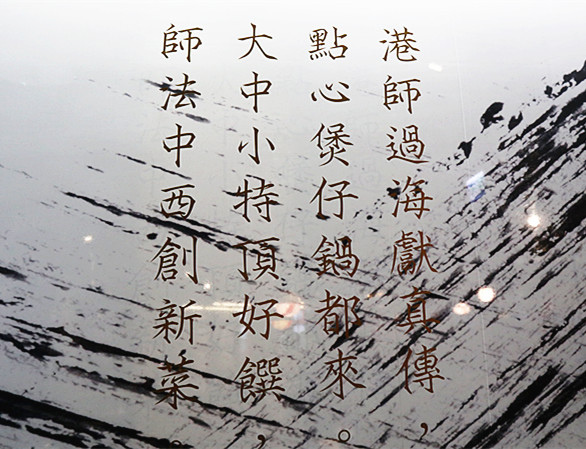 港師過海獻真傳，
點心煲仔鍋都來。
大中小特頂好饌，
師法中西創新菜。